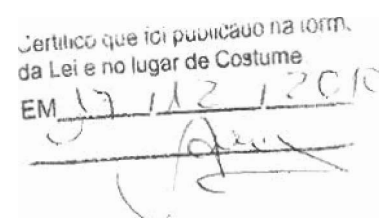 Certifico que foi publicado na form.
da Lei e no lugar de Costume
EM 17 / 12 / 2010